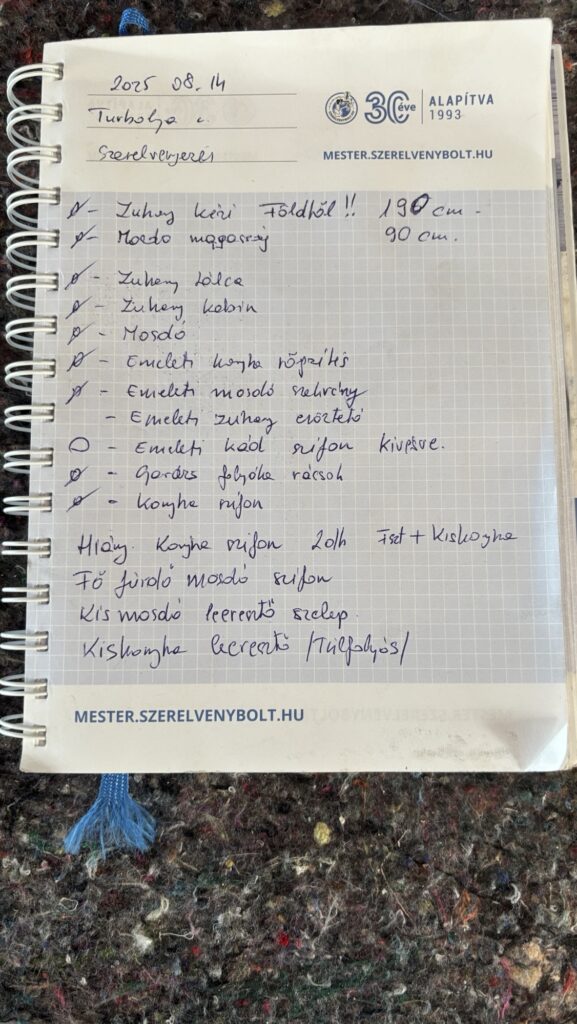 2025 08.14
Turbolya u.
Szerelvényezés
30 éve ALAPÍTVA
1993
MESTER.SZERELVENYBOLT.HU
- Zuhany kézi Földtől !! 190 cm -
- Mosdó magasság 90 cm.
- Zuhany tálca
- Zuhany kabin
- Mosdó
- Emeleti konyha
- Emeleti mosdó szekrény
- Emeleti zuhany
- Emeleti kád szifon kivésve.
- Garázs folyóka rácsok
- Konyha szifon
Hiány. Konyha szifon 2db Fszt + Kiskonyha
Fő fürdő mosdó szifon
Kis mosdó leeresztő szelep.
Kiskonyha leeresztő /Túlfolyós/
MESTER.SZERELVENYBOLT.HU